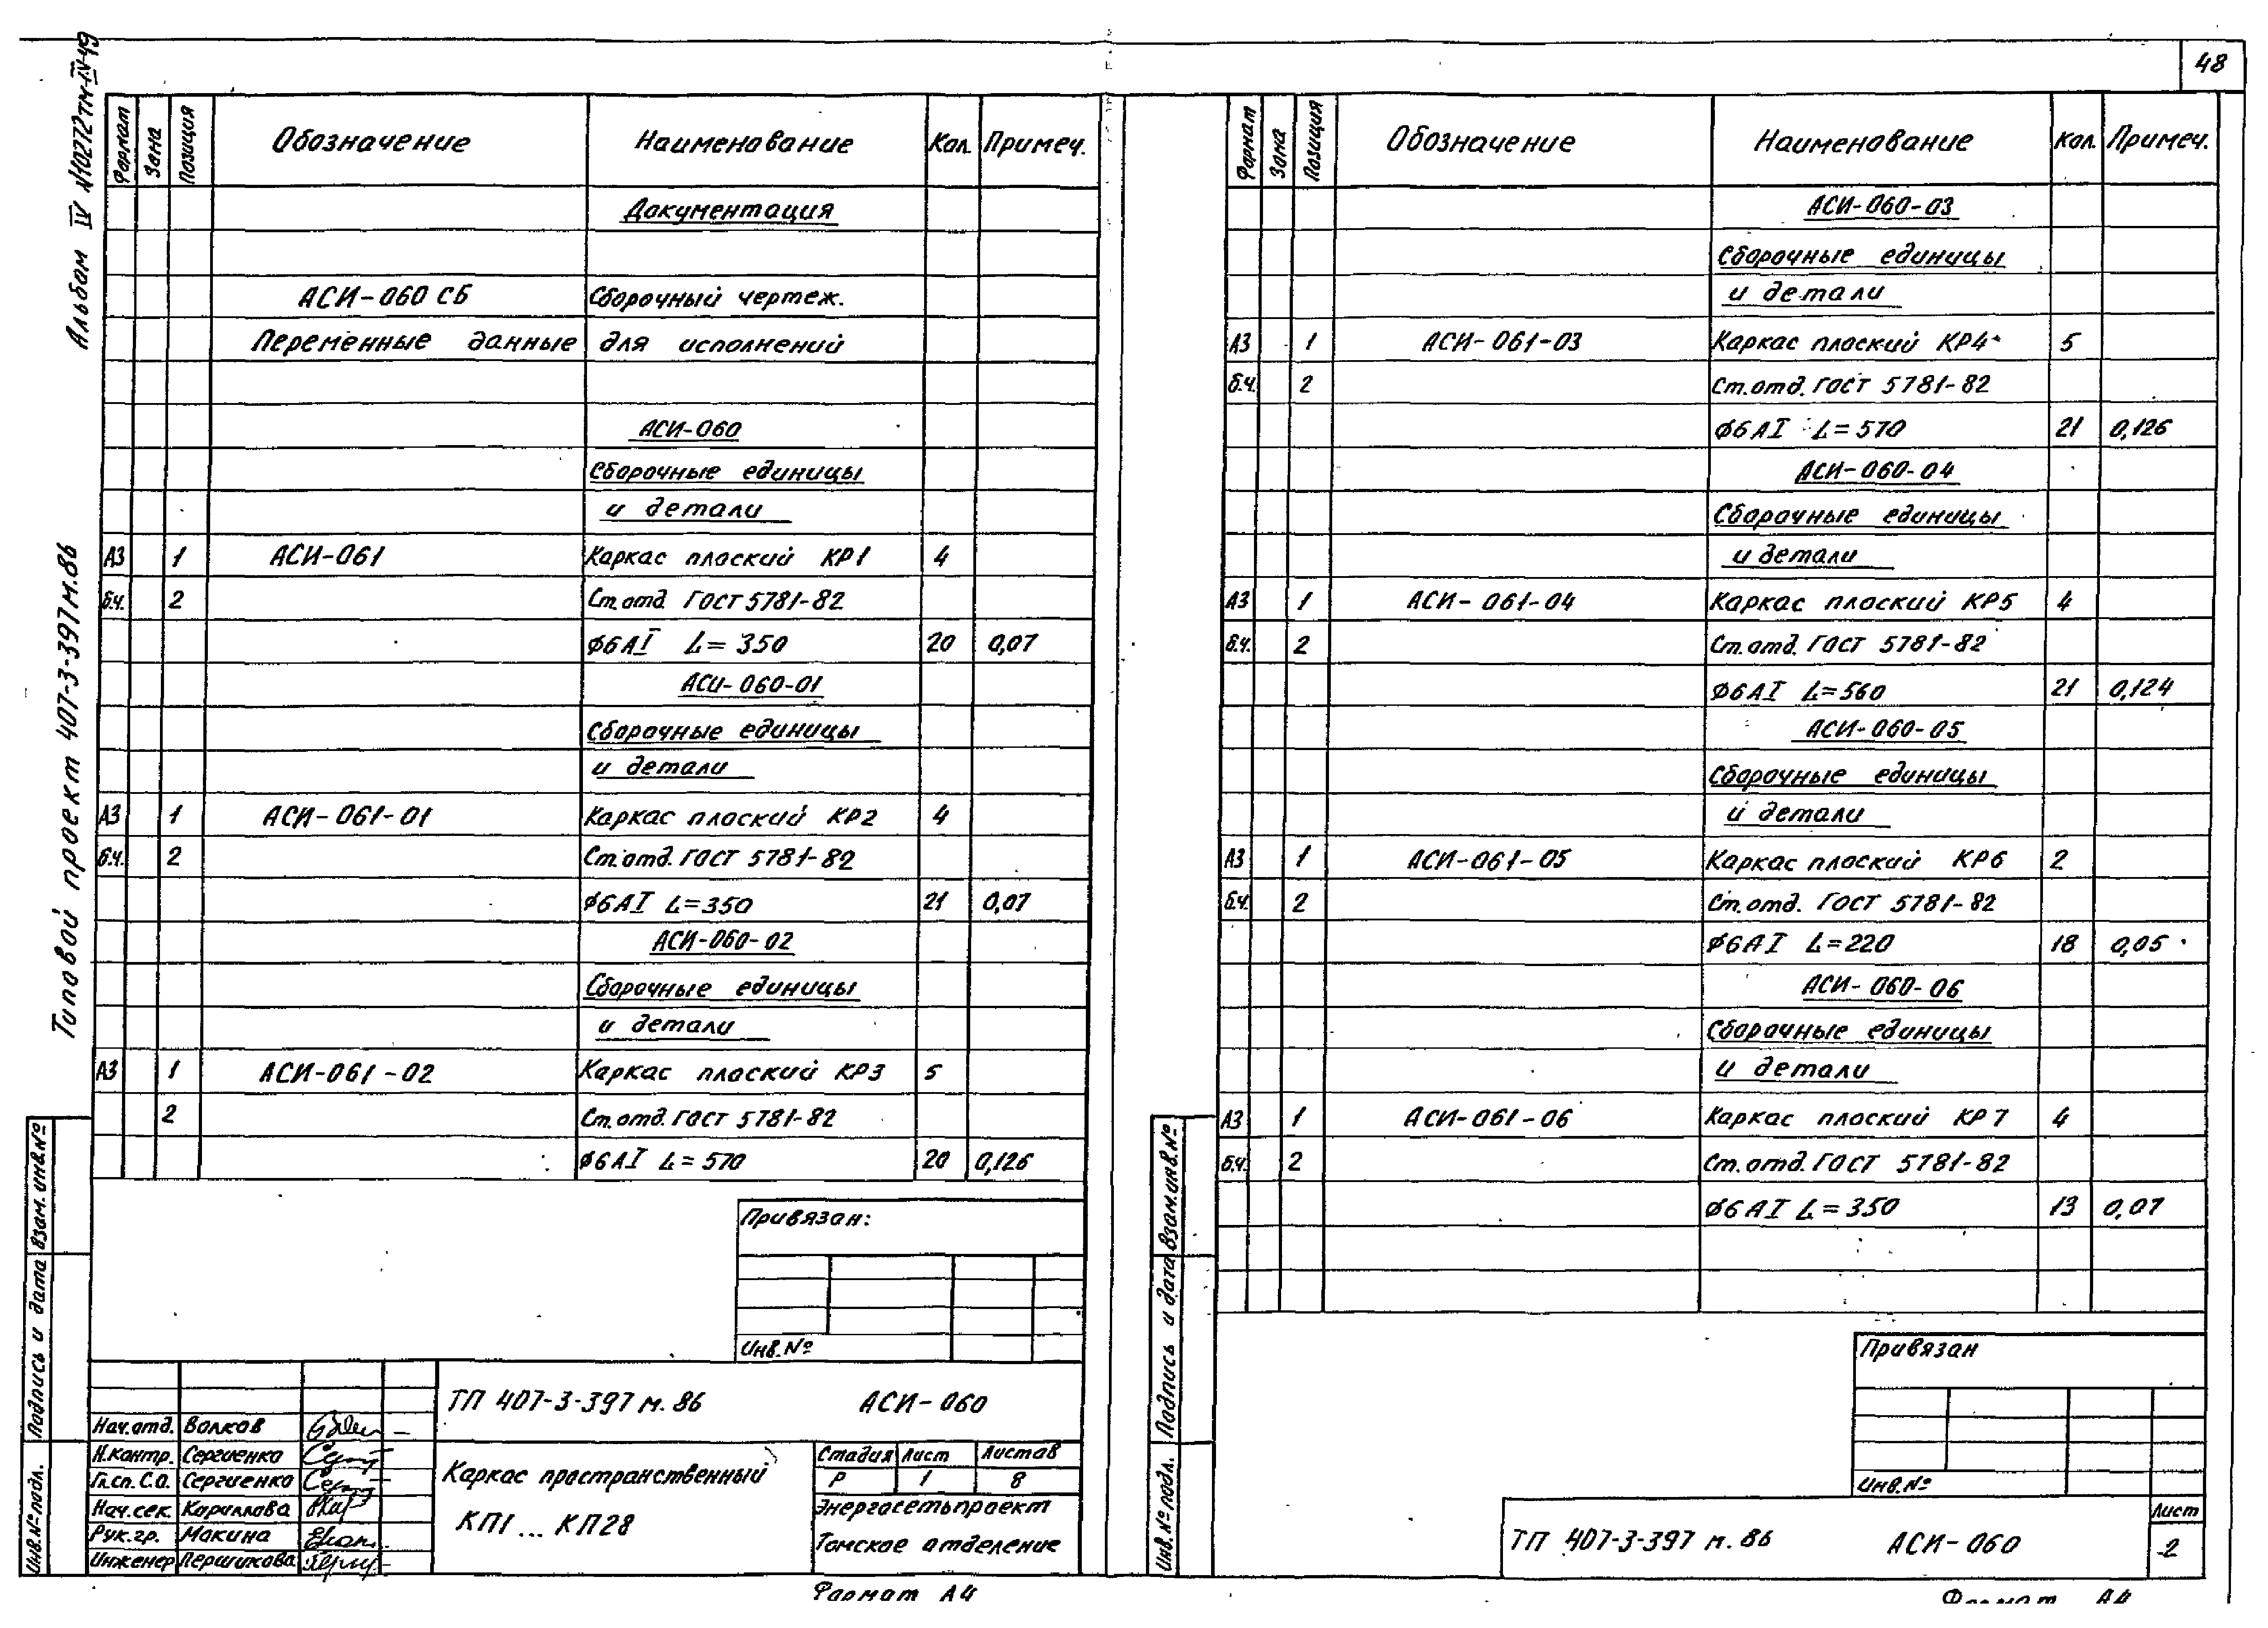 48
Альбом IV N10272тм-IV-49
Типовой проект 407-3-397м.86
Формат Зона Позиция Обозначение Наименование Кол. Примеч.
Документация
АСИ-060 СБ Сборочный чертеж.
Переменные данные для исполнений
АСИ-060
Сборочные единицы
и детали
А3 1 АСИ-061 Каркас плоский КР1 4
б.ч. 2 Ст.отд ГОСТ 5781-82
Ф6АI L=350 20 0,07
АСИ-060-01
Сборочные единицы
и детали
А3 1 АСИ-061-01 Каркас плоский КР2 4
б.ч. 2 Ст.отд. ГОСТ 5781-82
Ф6АI L=350 21 0,07
АСИ-060-02
Сборочные единицы
и детали
А3 1 АСИ-061-02 Каркас плоский КР3 5
2 Ст.отд. ГОСТ 5781-82
Ф6АI L=570 20 0,126
Привязан:
Инв.№
Взам.инв.№
Подпись и дата
Инв.№подл.
ТП 407-3-397 м.86 АСИ-060
Нач.отд. Волков
Н.контр. Сергиенко
Гл.сп.С.О. Сергиенко
Нач.сек. Кориллова
Рук.гр. Макина
Инженер Першикова
Каркас пространственный
КП1...КП28
Стадия Лист Листов
Р 1 8
Энергосетьпроект
Томское отделение
Формат А4
Формат Зона Позиция Обозначение Наименование Кол. Примеч.
АСИ-060-03
Сборочные единицы
и детали
А3 1 АСИ-061-03 Каркас плоский КР4 5
б.ч. 2 Ст.отд. ГОСТ 5781-82
Ф6АI L=570 21 0,126
АСИ-060-04
Сборочные единицы
и детали
А3 1 АСИ-061-04 Каркас плоский КР5 4
б.ч. 2 Ст.отд. ГОСТ 5781-82
Ф6АI L=560 21 0,124
АСИ-060-05
Сборочные единицы
и детали
А3 1 АСИ-061-05 Каркас плоский КР6 2
б.ч. 2 Ст.отд. ГОСТ 5781-82
Ф6АI L=220 18 0,05
АСИ-060-06
Сборочные единицы
и детали
А3 1 АСИ-061-06 Каркас плоский КР7 4
б.ч. 2 Ст.отд. ГОСТ 5781-82
Ф6АI L=350 13 0,07
Привязан
Инв.№
Взам.инв.№
Подпись и дата
Инв.№подл.
ТП 407-3-397 м.86 АСИ-060
Лист
2
Формат А4